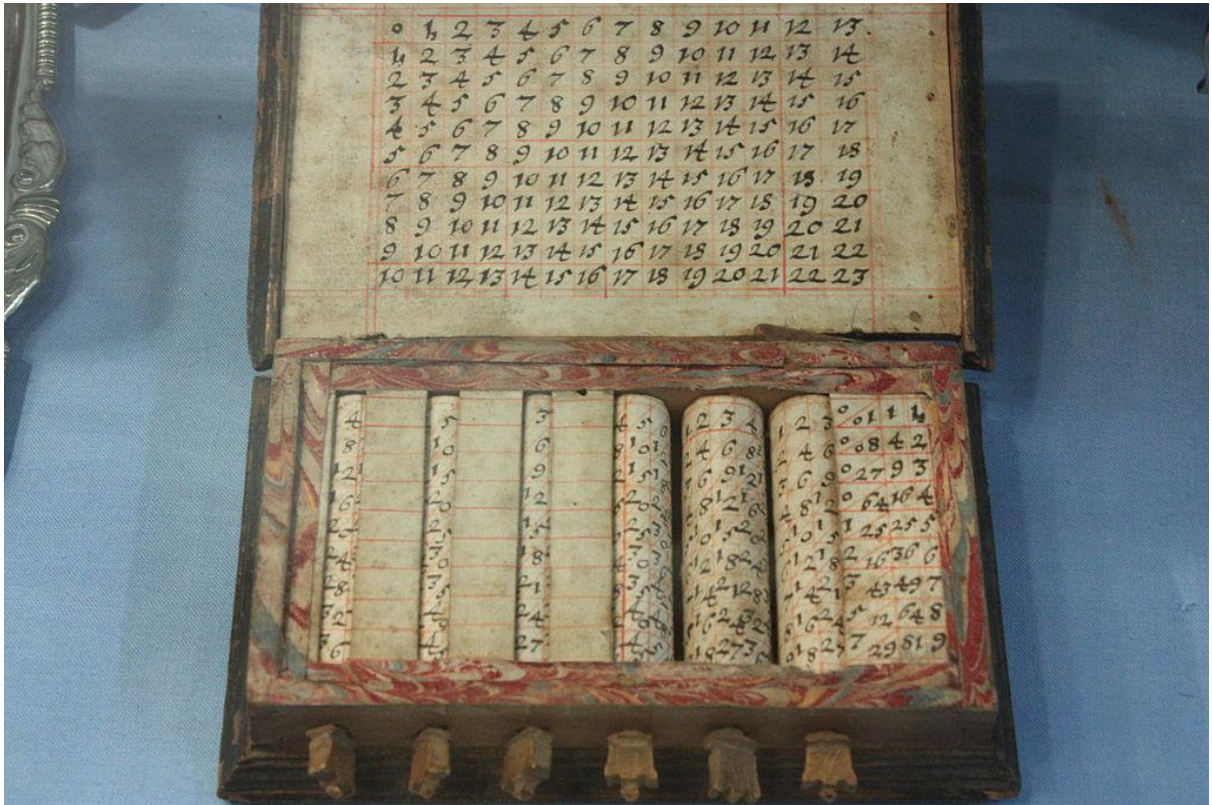 0 1 2 3 4 5 6 7 8 9 10 11 12 13
1 2 3 4 5 6 7 8 9 10 11 12 13 14
2 3 4 5 6 7 8 9 10 11 12 13 14 15
3 4 5 6 7 8 9 10 11 12 13 14 15 16
4 5 6 7 8 9 10 11 12 13 14 15 16 17
5 6 7 8 9 10 11 12 13 14 15 16 17 18
6 7 8 9 10 11 12 13 14 15 16 17 18 19
7 8 9 10 11 12 13 14 15 16 17 18 19 20
8 9 10 11 12 13 14 15 16 17 18 19 20 21
9 10 11 12 13 14 15 16 17 18 19 20 21 22
10 11 12 13 14 15 16 17 18 19 20 21 22 23
4 5 3 4 5 1 2 3 4 1 2 3 0 01 1 1
8 10 6 8 10 2 4 6 8 2 4 6 0 08 4 2
12 15 9 3 6 9 12 3 6 9 0 27 9 3
16 20 12 4 8 12 16 4 8 12 0 64 16 4
15 1 25 25 5
18 2 16 36 6
21 3 43 49 7
24 5 12 64 8
27 7 29 81 9